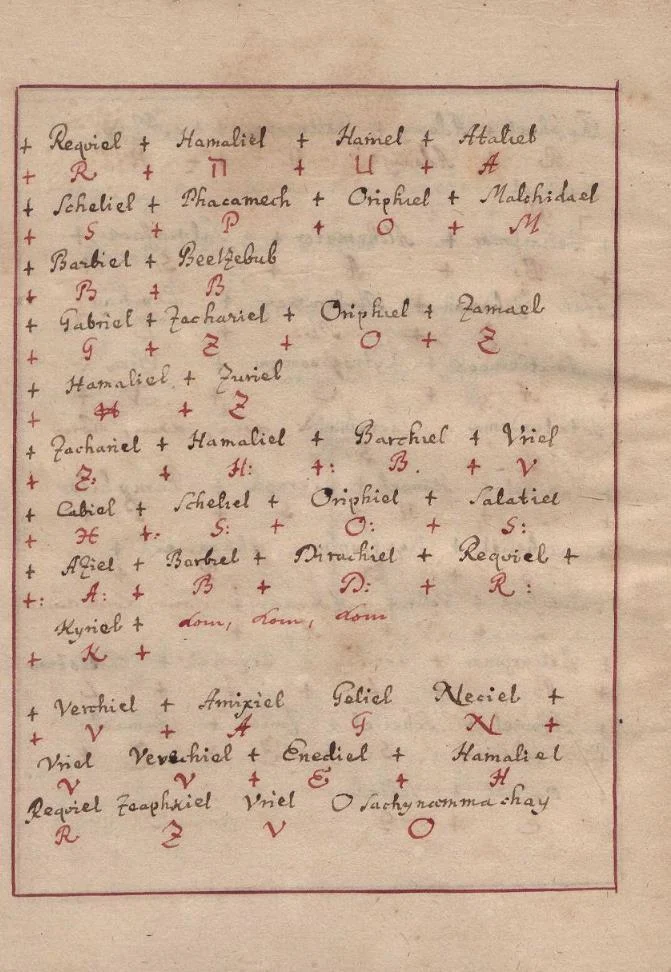 + Requiel + Hamaliel + Hamel + Ataliel
+ R + Π + U + A
+ Scheliel + Phacamech + Oriphiel + Malchidael
+ S + P + O + M
+ Barbiel + Beelzebub
+ B + B
+ Gabriel + Zachariel + Oriphiel + Zamael
+ G + Z + O + Z
+ Hamaliel + Zuriel
+ H + Z
+ Zachariel + Hamaliel + Barchiel + Vriel
+ Z. + H: +: B. + V
+ Cabiel + Scheliel + Oriphiel + Salatiel
+ H +: S: + O: + S:
+ Aziel + Barbiel + Dirachiel + Requiel +
+: A: + B + D: + R:
Kyriel + dom, dom, dom
+ K +
+ Verchiel + Amixiel Geliel Neciel +
+ V + A G N +
Vriel Verchiel + Enediel + Hamaliel
V V + E + H
Requiel Zeaphiel Vriel O Sachynomma chay
R Z V O